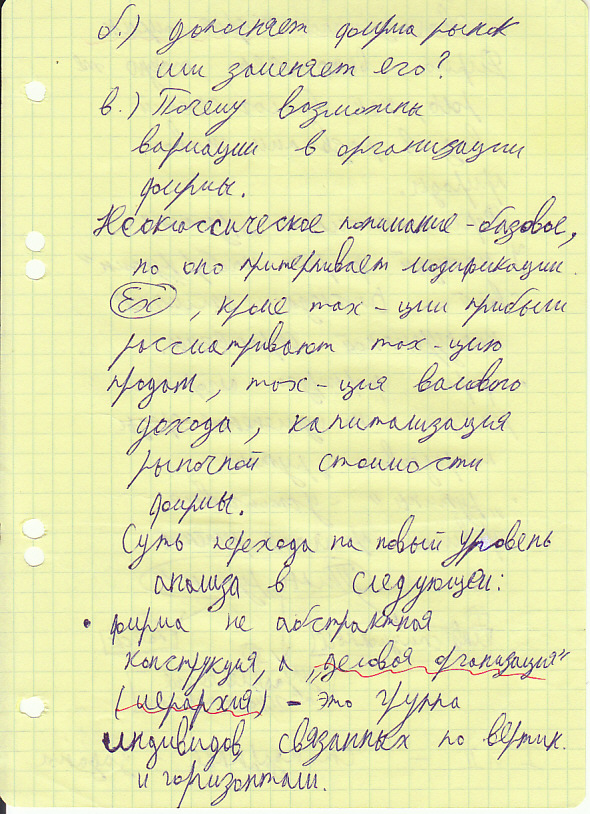 б.) дополняет фирма рынок
или заменяет его?
в.) Почему возможны
вариации в организации
фирмы.
Неоклассическое понимание - базовое,
но оно притерпивает модификации.
Ex, кроме max-ции прибыли
рассматривают max-цию
продаж, max-ция валового
дохода, капитализация
рыночной стоимости
фирмы.
Суть перехода на новый уровень
анализа в следующем:
• фирма не абстрактная
конструкция, а „деловая организация"
(иерархия) - это группа
индивидов, связанных по вертик.
и горизонтали.